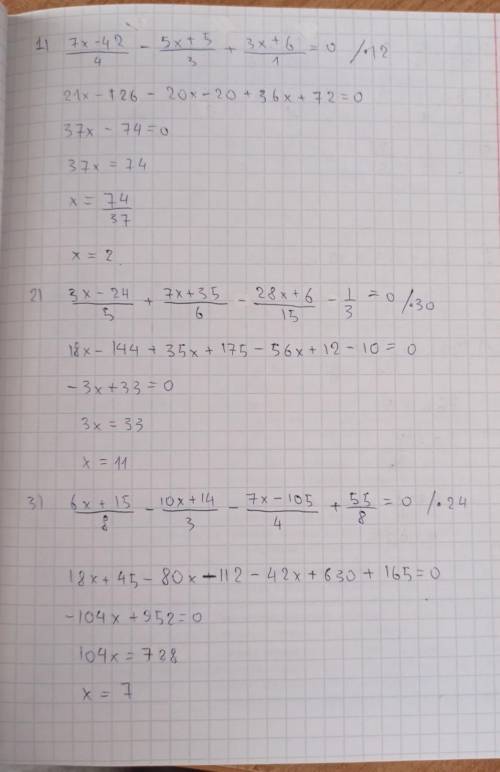 1) (7x-42)/4 - (5x+5)/3 + (3x+6)/1 = 0 /·12
21x - 126 - 20x - 20 + 36x + 72 = 0
37x - 74 = 0
37x = 74
x = 74/37
x = 2
2) (3x-24)/5 + (7x+35)/6 - (28x+6)/15 - 1/3 = 0 /·30
18x - 144 + 35x + 175 - 56x + 12 - 10 = 0
-3x + 33 = 0
3x = 33
x = 11
3) (6x+15)/8 - (10x+14)/3 - (7x-105)/4 + 55/8 = 0 /·24
18x + 45 - 80x - 112 - 42x + 630 + 165 = 0
-104x + 952 = 0
104x = 728
x = 7